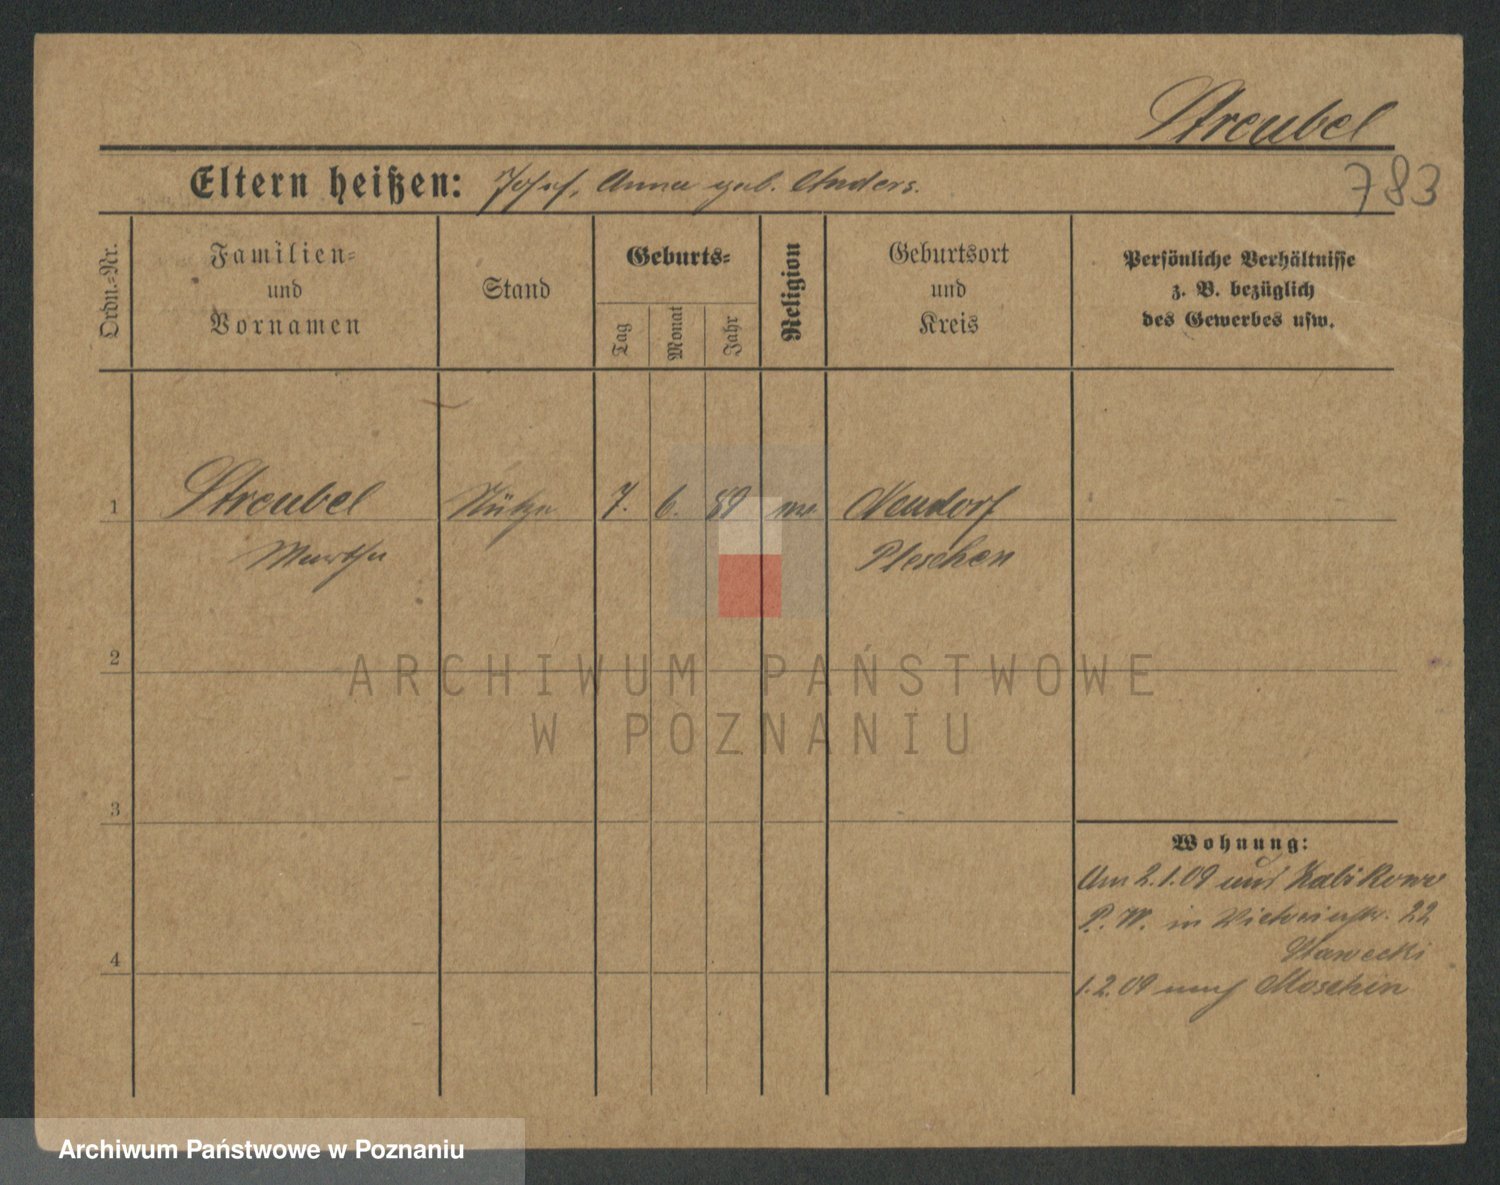 Streubel
Eltern heißen: Josef, Anna geb. Anders.
783
Ordn.-Nr.
Familien-
und
Vornamen
Stand
Geburts-
Tag
Monat
Jahr
Religion
Geburtsort
und
Kreis
Persönliche Verhältnisse
z. B. bezüglich
des Gewerbes usw.
1 Streubel Stütze 7. 6. 89 Neudorf
Martha Pleschen
2
ARCHIWUM PAŃSTWOWE
W POZNANIU
3
Wohnung:
Am 2.1.09 aus Zabikowo
P. W. in Victoriastr. 22
Stawecki
4
1.2.09 nach Moschin
Archiwum Państwowe w Poznaniu